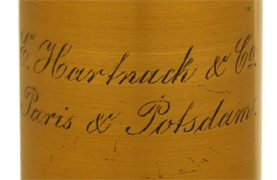 E. Hartnack & Co.
Paris & Potsdam.